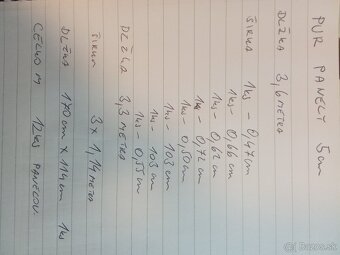 PUR PANELY 5cm
DĹŽKA 3,6 METRA
ŠÍRKA 1ks - 0,47cm
1ks - 0,66cm
1ks - 0,62cm
1ks - 0,72cm
1ks - 0,50cm
1ks - 103cm
1ks - 103cm
1ks - 0,55cm
DĹŽKA 3,3 METRA
ŠÍRKA 3x 1,14 METRA
DĹŽKA 170cm x 114cm 1ks
CELKOM 12ks PANELOV
bazos.sk